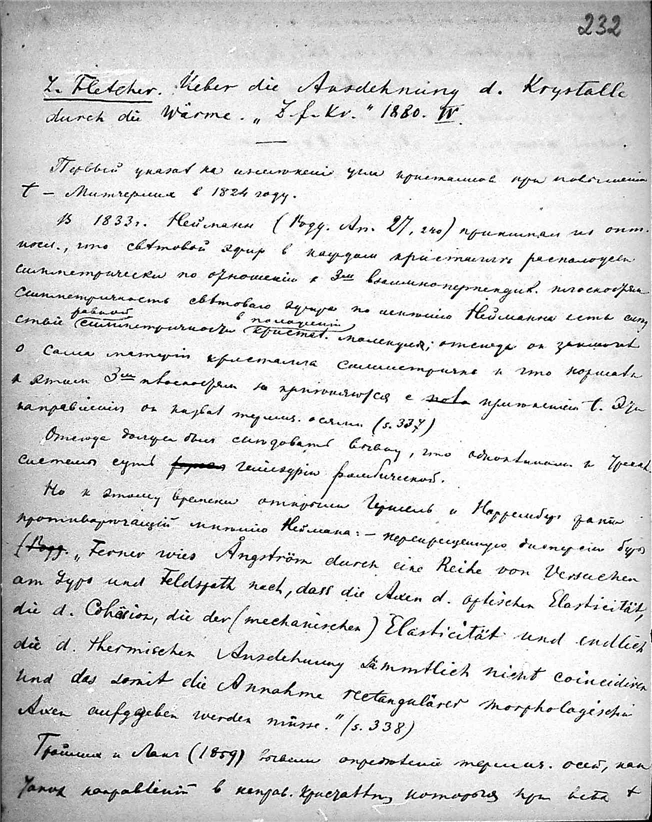 232
L. Fletcher. Ueber die Ausdehnung d. Krystalle
durch die Wärme. „Z. f. Kr.“ 1880. IV.
Первый указал на изменение угла кристаллов при повышении
t – Митчерлих в 1824 году.
В 1833 г. Нейманн (Pogg. An. 27, 240) принимал из опт.
, что световой эфир в каждом кристалле расположен
симметрически по отношению к 3м взаимноперпендик. плоскостям
симметричность светового эфира по мнению Нейманна есть
равной в положении
симметричности кристал. молекул; отсюда он заключает
о матерiи кристалла симметрично и что нормали
к этим 3м плоскостям не с t. Эти
направления он назвал термич. осями (s. 337)
Отсюда должен был следовать вывод, что и
системы суть гемиэдрии ромбической.
Но к этому времени открыли Гершель и Норремберг факт
противоречащий мнению Нейманна: –
(Pogg. „Ferner wies Ångström durch eine Reihe von Versuchen
am Gyps und Feldspath nach, dass die Axen d. optischen Elasticität,
die d. Cohäsion, die der (mechanischen) Elasticität und endlich
die d. thermischen Ausdehnung sämmtlich nicht coincidiren
und das somit die Annahme rectangulärer morphologischer
Axen aufgegeben werden müsse.“ (s. 338)
Грайлих и Ланг (1859) определение термич. осей, как
таких направлений в которые при всех t